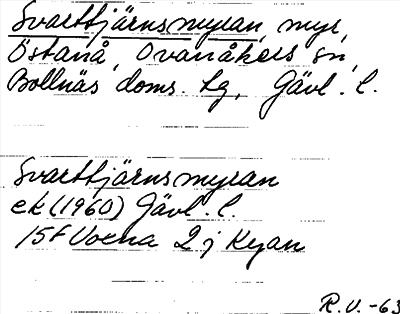 Svarttjärnsmyran, myr,
Östanå, Ovanåkers sn,
Bollnäs doms. lg, Gävl. l.
Svarttjärnsmyran
ek (1960) Gävl. l.
15F Voxna 2 j Kyan
R.V. -63